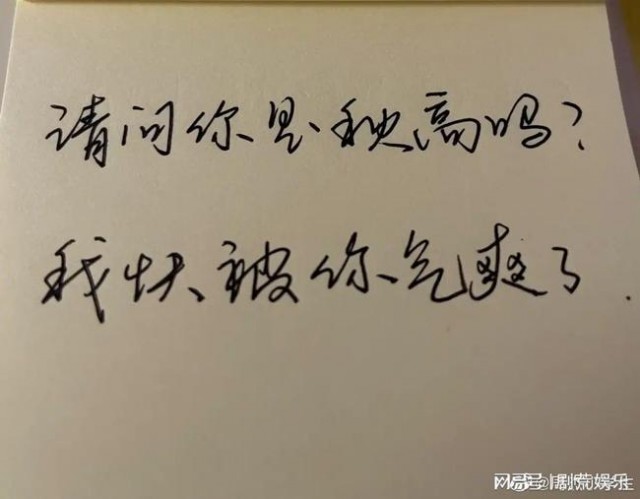 请问你是秧高吗?
我快被你气爽了.
网易号 | 剧荒娱乐